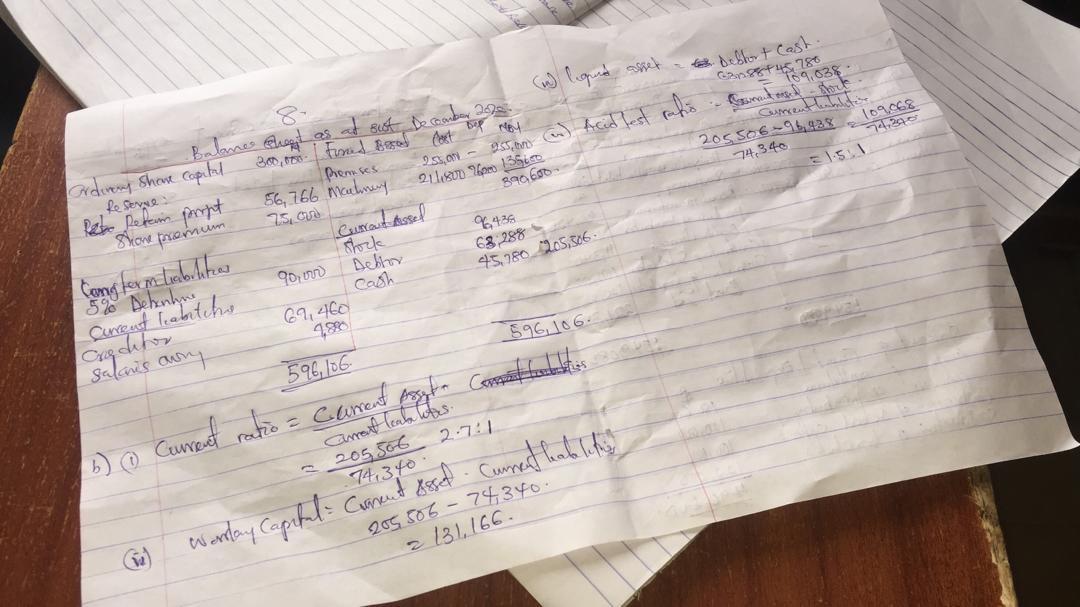 8.
Balance sheet as at 31st December 2020.
Ordinary Share capital 300,000. Fixed Asset Cost Dep NBV
Reserve: Premises 255,000 - 255,000
Retain profit 56,766 Machinery 211,800 76000 135,600
Share premium 75,000 390,600.
Current Asset
Stock 96,438
Long term liabilities Debtor 63,288
5% Debenture 90,000 Cash 45,780 205,506.
Current liabilities
Creditor 69,460
Salaries owing 4,880
596,106. 596,106.
b) (i) Current ratio = Current Asset
Current liabilities.
= 205,506 - 2.7:1
74,340.
(ii) Working Capital = Current Asset - Current liabilities
205,506 - 74,340.
= 131,166.
liquid asset = Debtor + Cash.
63288 + 45,780
= 109,038.
Acid test ratio = Current asset - Stock
Current liabilities
205,506 - 96,438 = 109,068
74,340 74,340
= 1.5:1